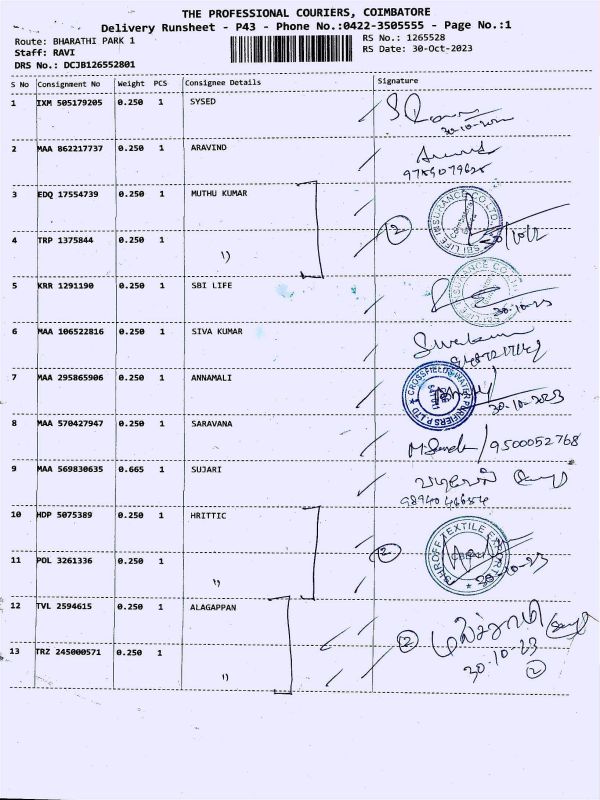 THE PROFESSIONAL COURIERS, COIMBATORE
Delivery Runsheet - P43 - Phone No.:0422-3505555 - Page No.:1
Route: BHARATHI PARK 1
RS No.: 1265528
Staff: RAVI
RS Date: 30-Oct-2023
DRS No.: DCJB126552801
S No Consignment No Weight PCS Consignee Details Signature
1 IXM 505179205 0.250 1 SYSED
2 MAA 862217737 0.250 1 ARAVIND
3 EDQ 17554739 0.250 1 MUTHU KUMAR
SBI LIFE INSURANCE CO.LTD.
2
4 TRP 1375844 0.250 1 1)
5 KRR 1291190 0.250 1 SBI LIFE
INSURANCE CO.
30-10-23
6 MAA 106522816 0.250 1 SIVA KUMAR
7 MAA 295865906 0.250 1 ANNAMALI
CROSSFIELD WATER PURIFIERS P LTD
30-10-2023
8 MAA 570427947 0.250 1 SARAVANA
9500052768
9 MAA 569830635 0.665 1 SUJARI
10 HDP 5075389 0.250 1 HRITTIC
TEXTILE
2
11 PDL 3261336 0.250 1 1)
30-10-23
12 TVL 2594615 0.250 1 ALAGAPPAN
2
30-10-23
2
13 TRZ 245000571 0.250 1 1)